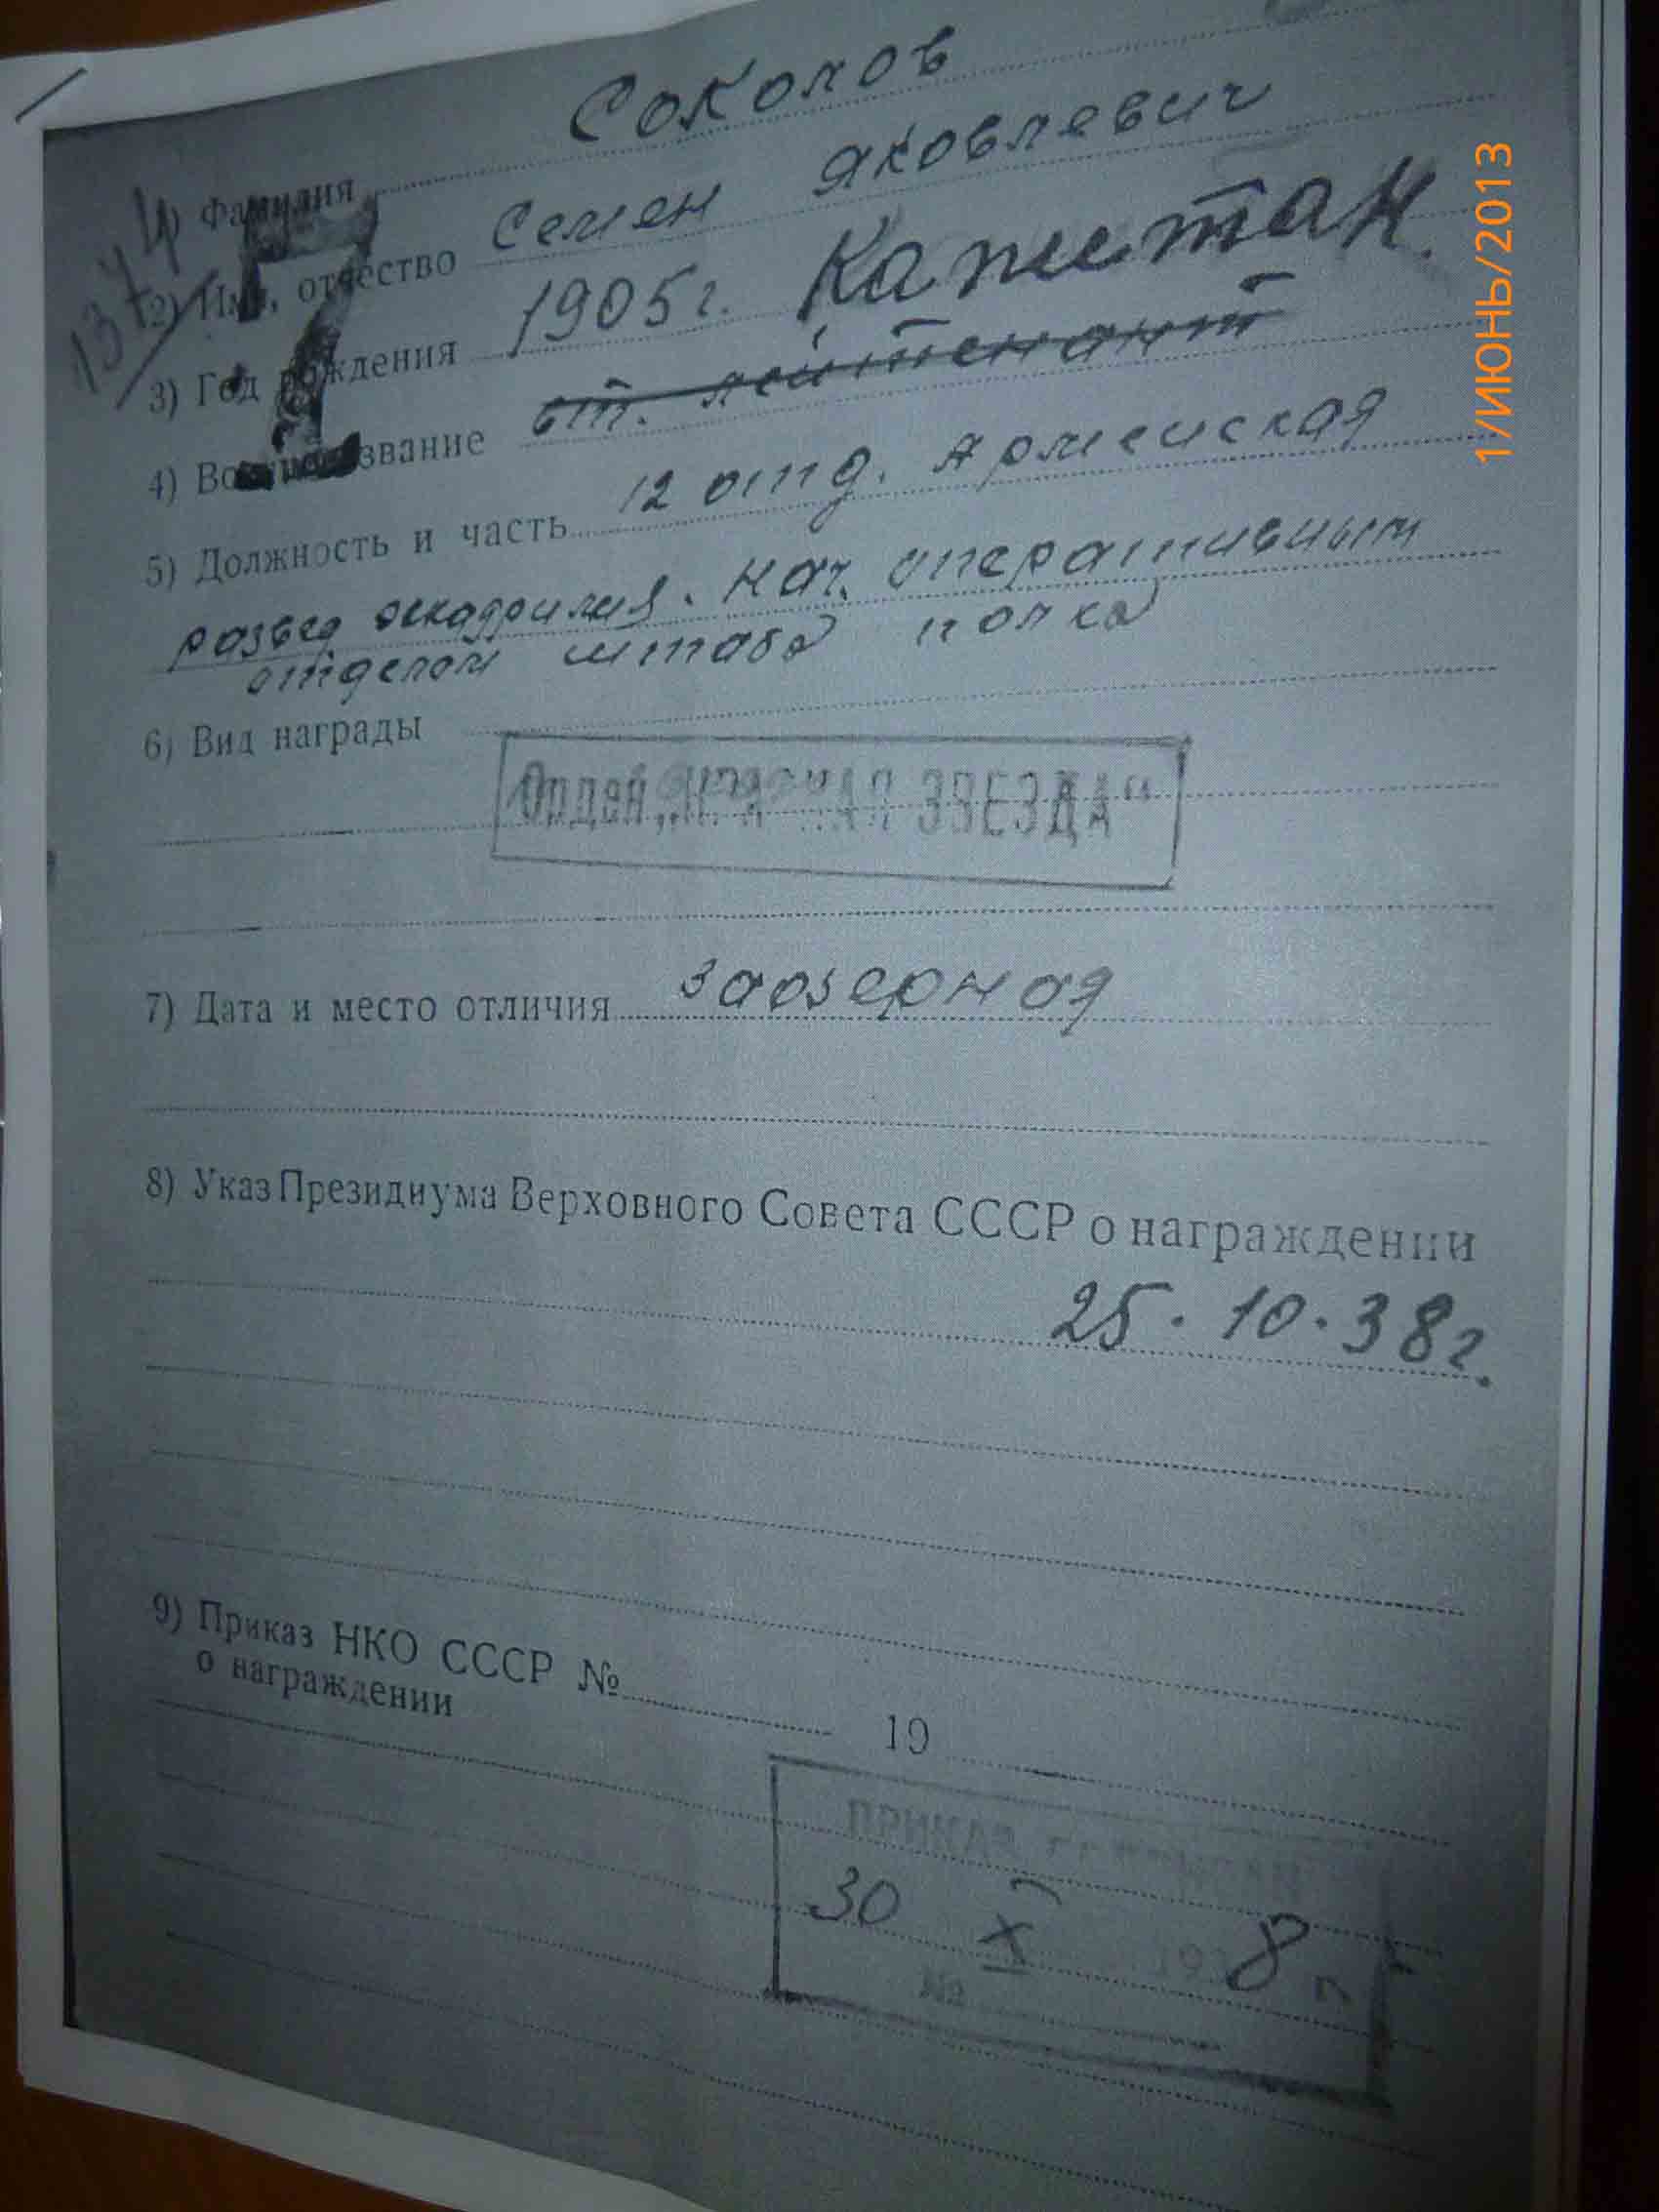 Соколов
1) Фамилия
2) Имя, отчество Семен Яковлевич
3) Год рождения 1905 г. Капитан.
4) Военное звание ст. лейтенант
5) Должность и часть 12 отд. Армейская
развед эскадрилия. Нач. оперативным
отделом штаба полка
6) Вид награды
Орден „КРАСНАЯ ЗВЕЗДА“
7) Дата и место отличия Заозерная
8) Указ Президиума Верховного Совета СССР о награждении
25.10.38г.
9) Приказ НКО СССР № 19
о награждении
ПРИКАЗ
30 X 1938 г.
№
1/ИЮНЬ/2013